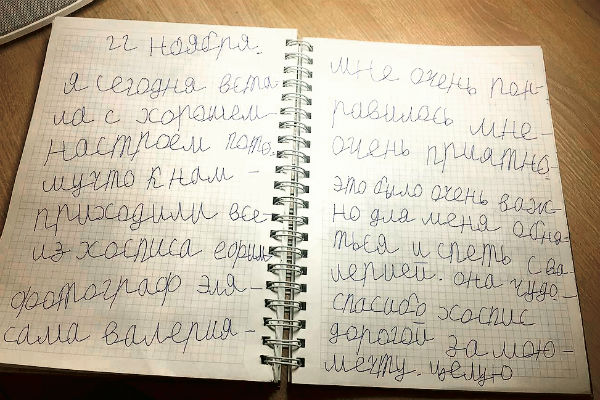 22 ноября.
я сегодня вста-
ла с хорошем-
настроем пото.
мучто к нам -
приходили все-
из хосписа
фотограф эля-
сама валерия-
мне очень пон-
равилось мне-
очень приятно.
это было очень важ-
но для меня обня-
ться и спеть с ва-
лерией. она чудо-
спасибо хоспис
дорогой за мою-
мечту. целую